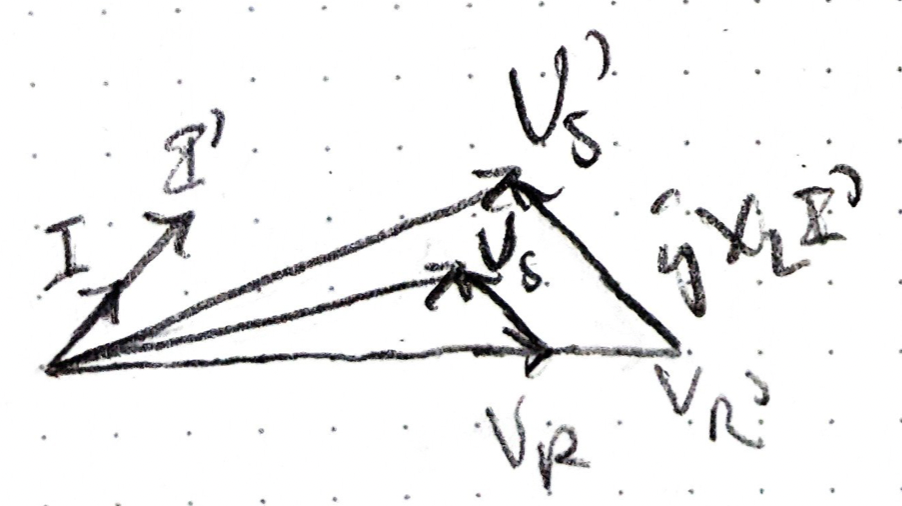 V_S'
I'
I
V_S
jX_L I'
V_R'
V_R